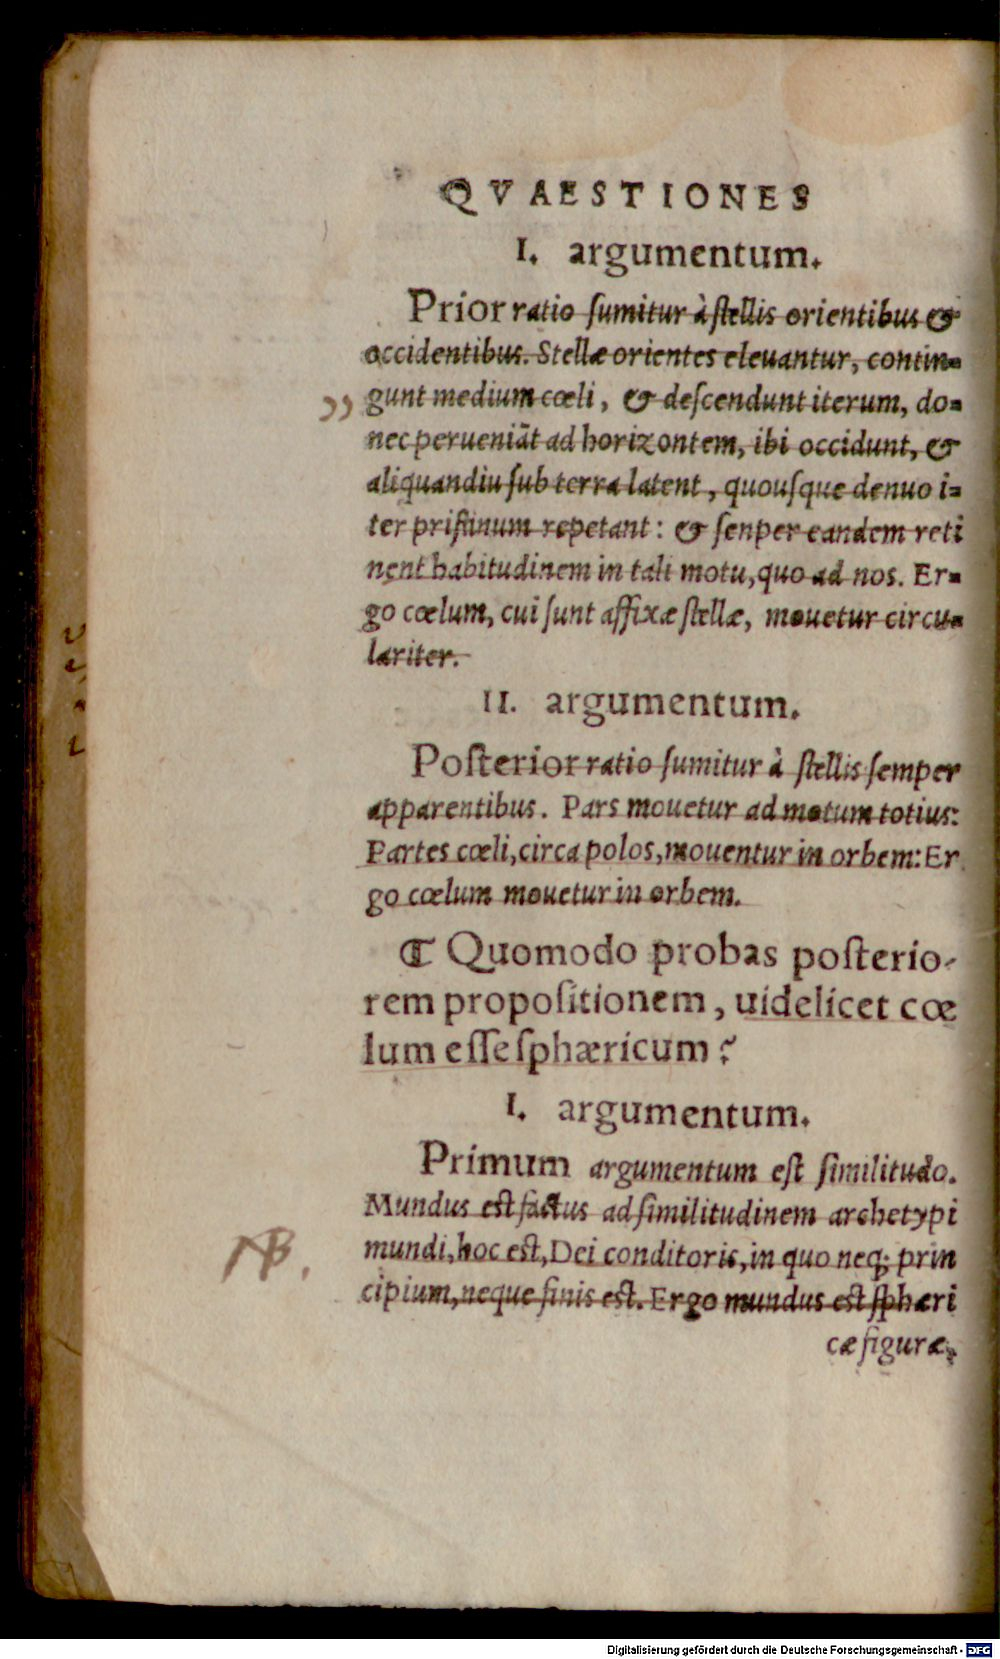 QVAESTIONES
I. argumentum.
Prior ratio sumitur à stellis orientibus &
occidentibus. Stellæ orientes eleuantur, contin-
gunt medium cœli, & descendunt iterum, do-
nec perueniāt ad horizontem, ibi occidunt, &
aliquandiu sub terra latent, quousque denuo i-
ter pristinum repetant: & senper eandem reti
nent habitudinem in tali motu, quo ad nos. Er-
go cœlum, cui sunt affixæ stellæ, mouetur circu-
lariter.
II. argumentum.
Posterior ratio sumitur à stellis semper
apparentibus. Pars mouetur ad motum totius:
Partes cœli, circa polos, mouentur in orbem: Er
go cœlum mouetur in orbem.
¶ Quomodo probas posterio-
rem propositionem, uidelicet cœ
lum esse sphæricum?
I. argumentum.
Primum argumentum est similitudo.
Mundus est factus ad similitudinem archetypi
mundi, hoc est, Dei conditoris, in quo neq; prin
NB.
cipium, neque finis est. Ergo mundus est sphæri
cæ figuræ,
Digitalisierung gefördert durch die Deutsche Forschungsgemeinschaft - DFG